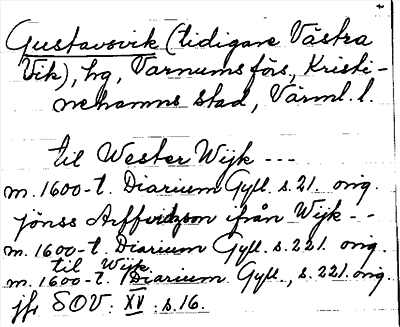 Gustavsvik (tidigare Västra
Vik), hg, Varnums förs., Kristi-
nehamns stad, Värml. l.
til Wester Wijk ---
m. 1600-t. Diarium Gyll. s. 21. orig.
jönss Arffvidzson ifrån Wijk --
m. 1600-t. Diarium Gyll. s. 221. orig.
til Wijk
m. 1600-t. Diarium Gyll., s. 221. orig.
jfr SOV: XV s. 16.